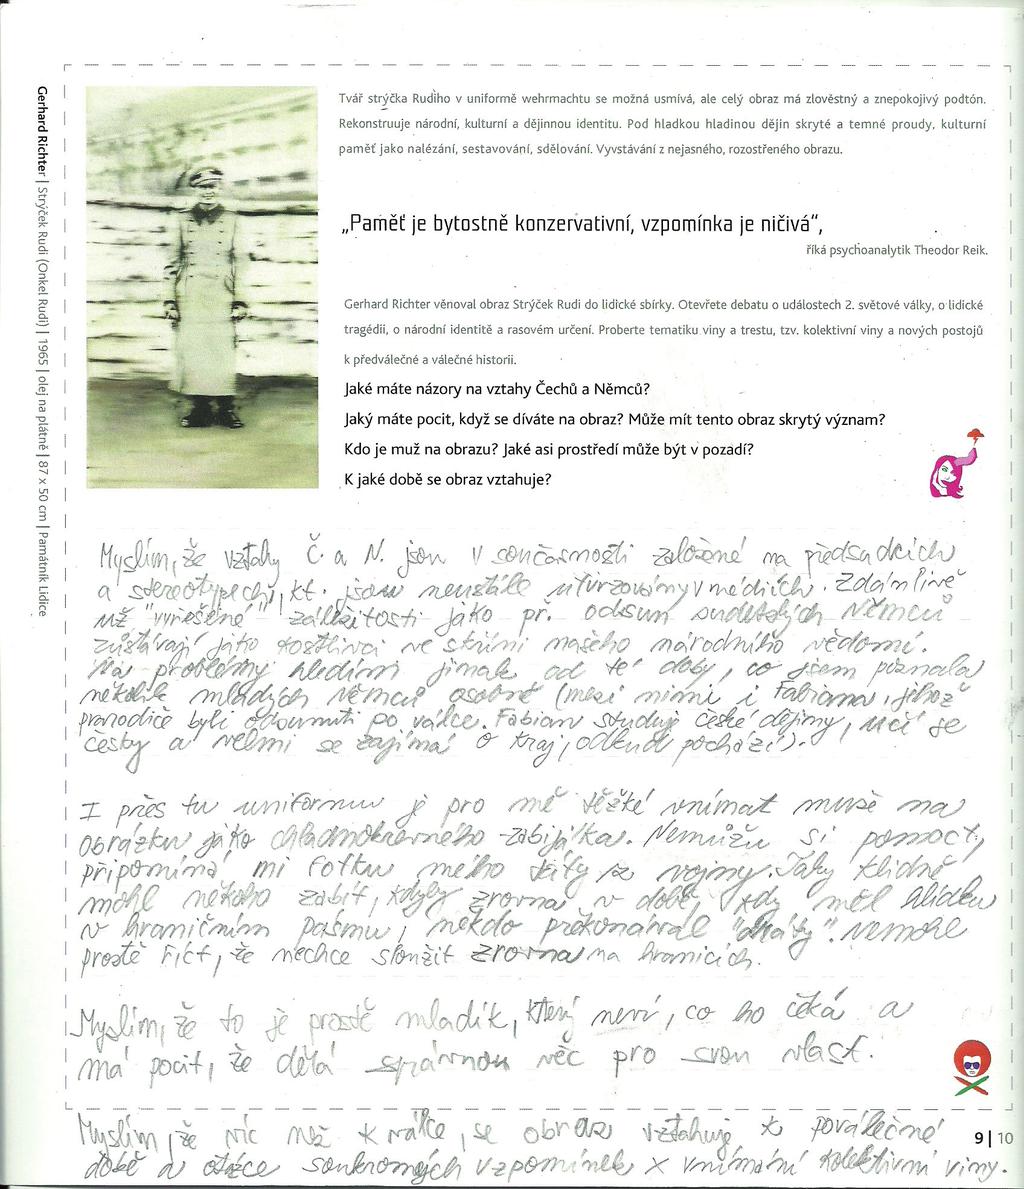 Gerhard Richter | Strýček Rudi (Onkel Rudi) | 1965 | olej na plátně | 87 x 50 cm | Památník Lidice
Tvář strýčka Rudiho v uniformě wehrmachtu se možná usmívá, ale celý obraz má zlověstný a znepokojivý podtón.
Rekonstruuje národní, kulturní a dějinnou identitu. Pod hladkou hladinou dějin skryté a temné proudy, kulturní
paměť jako nalézání, sestavování, sdělování. Vyvstávání z nejasného, rozostřeného obrazu.
„Paměť je bytostně konzervativní, vzpomínka je ničivá“,
říká psychoanalytik Theodor Reik.
Gerhard Richter věnoval obraz Strýček Rudi do lidické sbírky. Otevřete debatu o událostech 2. světové války, o lidické
tragédii, o národní identitě a rasovém určení. Proberte tematiku viny a trestu, tzv. kolektivní viny a nových postojů
k předválečné a válečné historii.
Jaké máte názory na vztahy Čechů a Němců?
Jaký máte pocit, když se díváte na obraz? Může mít tento obraz skrytý význam?
Kdo je muž na obrazu? Jaké asi prostředí může být v pozadí?
K jaké době se obraz vztahuje?
Myslím, že vztahy Č. a N. jsou v současnosti založené na předsudcích
a stereotypech, kt. jsou neustále utvrzovány v médiích. Zdánlivě
už "vyřešené" záležitosti jako př. odsun sudetských Němců
zůstávají jako kostlivci ve skříni našeho národního vědomí.
Na problémy hledím jinak od té doby, co jsem poznala
několik mladých Němců osobně (mezi nimi i Fabiana, jehož
prarodiče byli odsunuti po válce. Fabian studuje české dějiny, učí se
česky a velmi se zajímá o kraj, odkud pochází).
I přes tu uniformu je pro mě těžké vnímat muže na
obrázku jako chladnokrevného zabijáka. Nemůžu si pomoct,
připomíná mi fotku mého táty z vojny. Taky klidně
mohl někoho zabít, kdyby zrovna v době, kdy měl hlídku
v hraničním pásmu, někdo překonával "dráty". Nemohl
prostě říct, že nechce sloužit zrovna na hranicích.
Myslím, že to je prostě mladík, který neví, co ho čeká a
má pocit, že dělá správnou věc pro svou vlast.
Myslím, že víc než k válce, se obraz vztahuje k poválečné
době a otázce soukromých vzpomínek x vnímání kolektivní viny.
9 | 10